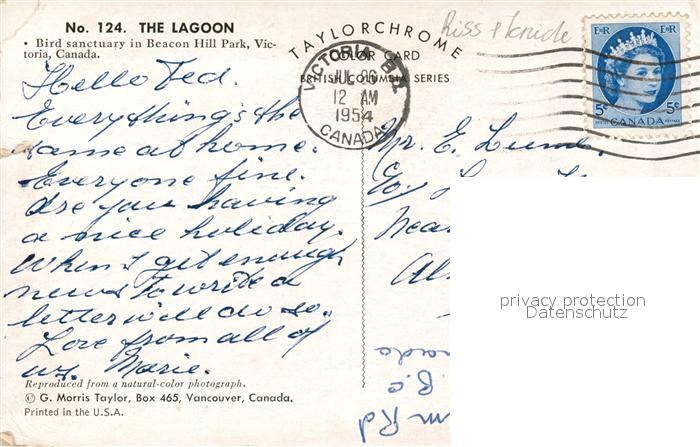 No. 124. THE LAGOON
• Bird sanctuary in Beacon Hill Park, Vic-
toria, Canada.
TAYLORCHROME
COLOR CARD
BRITISH COLUMBIA SERIES
VICTORIA B.C.
JUL 26
12 AM
1954
CANADA
E II R E II R
5c 5c
CANADA
POSTES POSTAGE
Hello Ted.
Everything's the
same at home.
Everyone fine.
Are you having
a nice holiday.
When I get enough
news to write a
letter will do so.
Love from all of
us. Marie.
Mr. E.
c/o
Near
privacy protection
Datenschutz
B.C.
Rd
Reproduced from a natural-color photograph.
© G. Morris Taylor, Box 465, Vancouver, Canada.
Printed in the U.S.A.